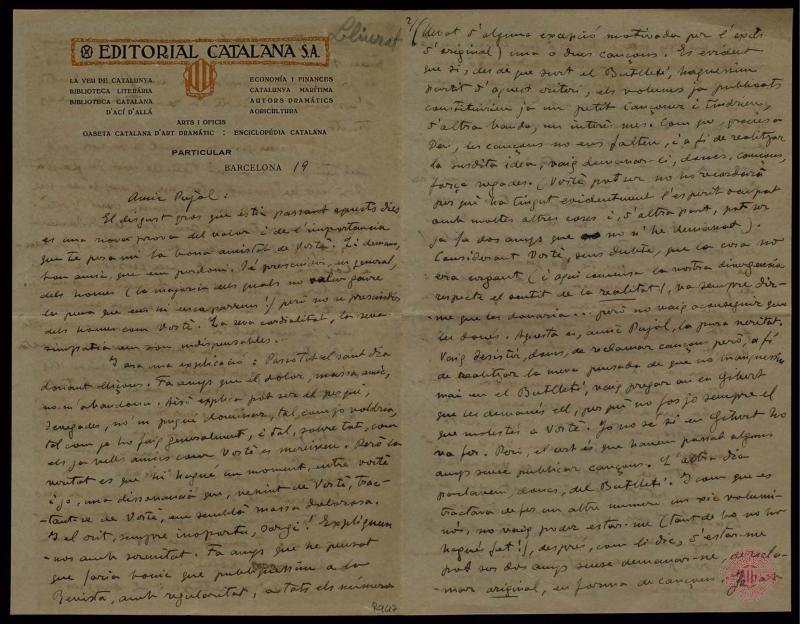 Lliurat
EDITORIAL CATALANA S.A.
LA VEU DE CATALUNYA
BIBLIOTECA LITERÀRIA
BIBLIOTECA CATALANA
D'ACÍ D'ALLÀ
ECONOMIA I FINANCES
CATALUNYA MARÍTIMA
AUTORS DRAMÀTICS
AGRICULTURA
ARTS I OFICIS
GASETA CATALANA D'ART DRAMÀTIC : ENCICLOPÈDIA CATALANA
PARTICULAR
BARCELONA 19
Amic Pujol:
El disgust gros que estic passant aquests dies
es una nova prova del valor i de l'importancia
que te per a mi la bona amistat de Vostè. Li demano,
bon amic, que em perdoni. Sé prescindir, en general,
dels homes (la majoria dels quals no valen gaire
la pena que un hi ) però no se prescindir
dels homes com Vostè. La seva cordialitat, la seva
simpatia em son indispensables.
I ara una explicació: Passo tot el sant dia
donant lliçons. Fa anys que el dolor, massa amic,
no m'abandona. Això explica pot ser el perquè,
denegades, no'm pugui dominar, tal com jo voldria,
tal com jo ho faig generalment, i tal, sobre tot, com
els ja vells amics com Vostè es mereixen. Però la
veritat es que hi hagué un moment, entre vostè
i jo, una dissonancia que, venint de Vostè, trac-
tant-se de Vostè, em semblà massa dolorosa.
I el crit, sempre inoportú, sorgí! Expliquem-
nos amb serenitat. Fa anys que he pensat
que faria bonic que publiquessim a la
Revista, amb regularitat, a tots els números
R947
2/ (llevat d'alguna excepció motivada per l'excés
d'original) una o dues cançons. Es evident
que si, des de que surt el Butlletí, haguessim
partit d'aquest criteri, els volumes ja publicats
constituirien ja un petit Cançoner i tindrien,
d'altra banda, un interès mes. Com que, gracies a
Deu, les cançons no ens falten, i a fi de realitzar
la susdita idea, vaig demanar-li, doncs, cançons,
força vegades. (Vostè pot ser no ho recordarà
perquè ha tingut evidentment l'esperit ocupat
amb moltes altres coses i, d'altra part, pot ser
ja fa dos anys que no n'he demanat).
Considerant Vostè, sens dubte, que la cosa no
era urgent (i aquí comença la nostra divergencia
respecte el sentit de la realitat), va sempre dir-
me que les donaria... però no vaig aconseguir que
les donés. Aquesta es, amic Pujol, la pura veritat.
Vaig desistir, doncs, de reclamar cançons però, a fi
de realitzar la meva pensada de que no manquessin
mai en el Butlletí, vaig pregar an en Gibert
que les demanés ell, perquè no fos jo sempre el
que molestés a Vostè. Jo no sé si en Gibert ho
va fer. Però, el cert es que havem passat alguns
anys sense publicar cançons. L'altra dia
parlavem, doncs, del Butlletí. I com que es
tractava de fer un altre numero un xic volumi-
nós, no vaig poder estar-me (tant de bo no ho
hagués fet!), després, com li dic, d'estar-me
pot ser dos anys sense demanar-ne, de recla-
mar original, en forma de cançons.